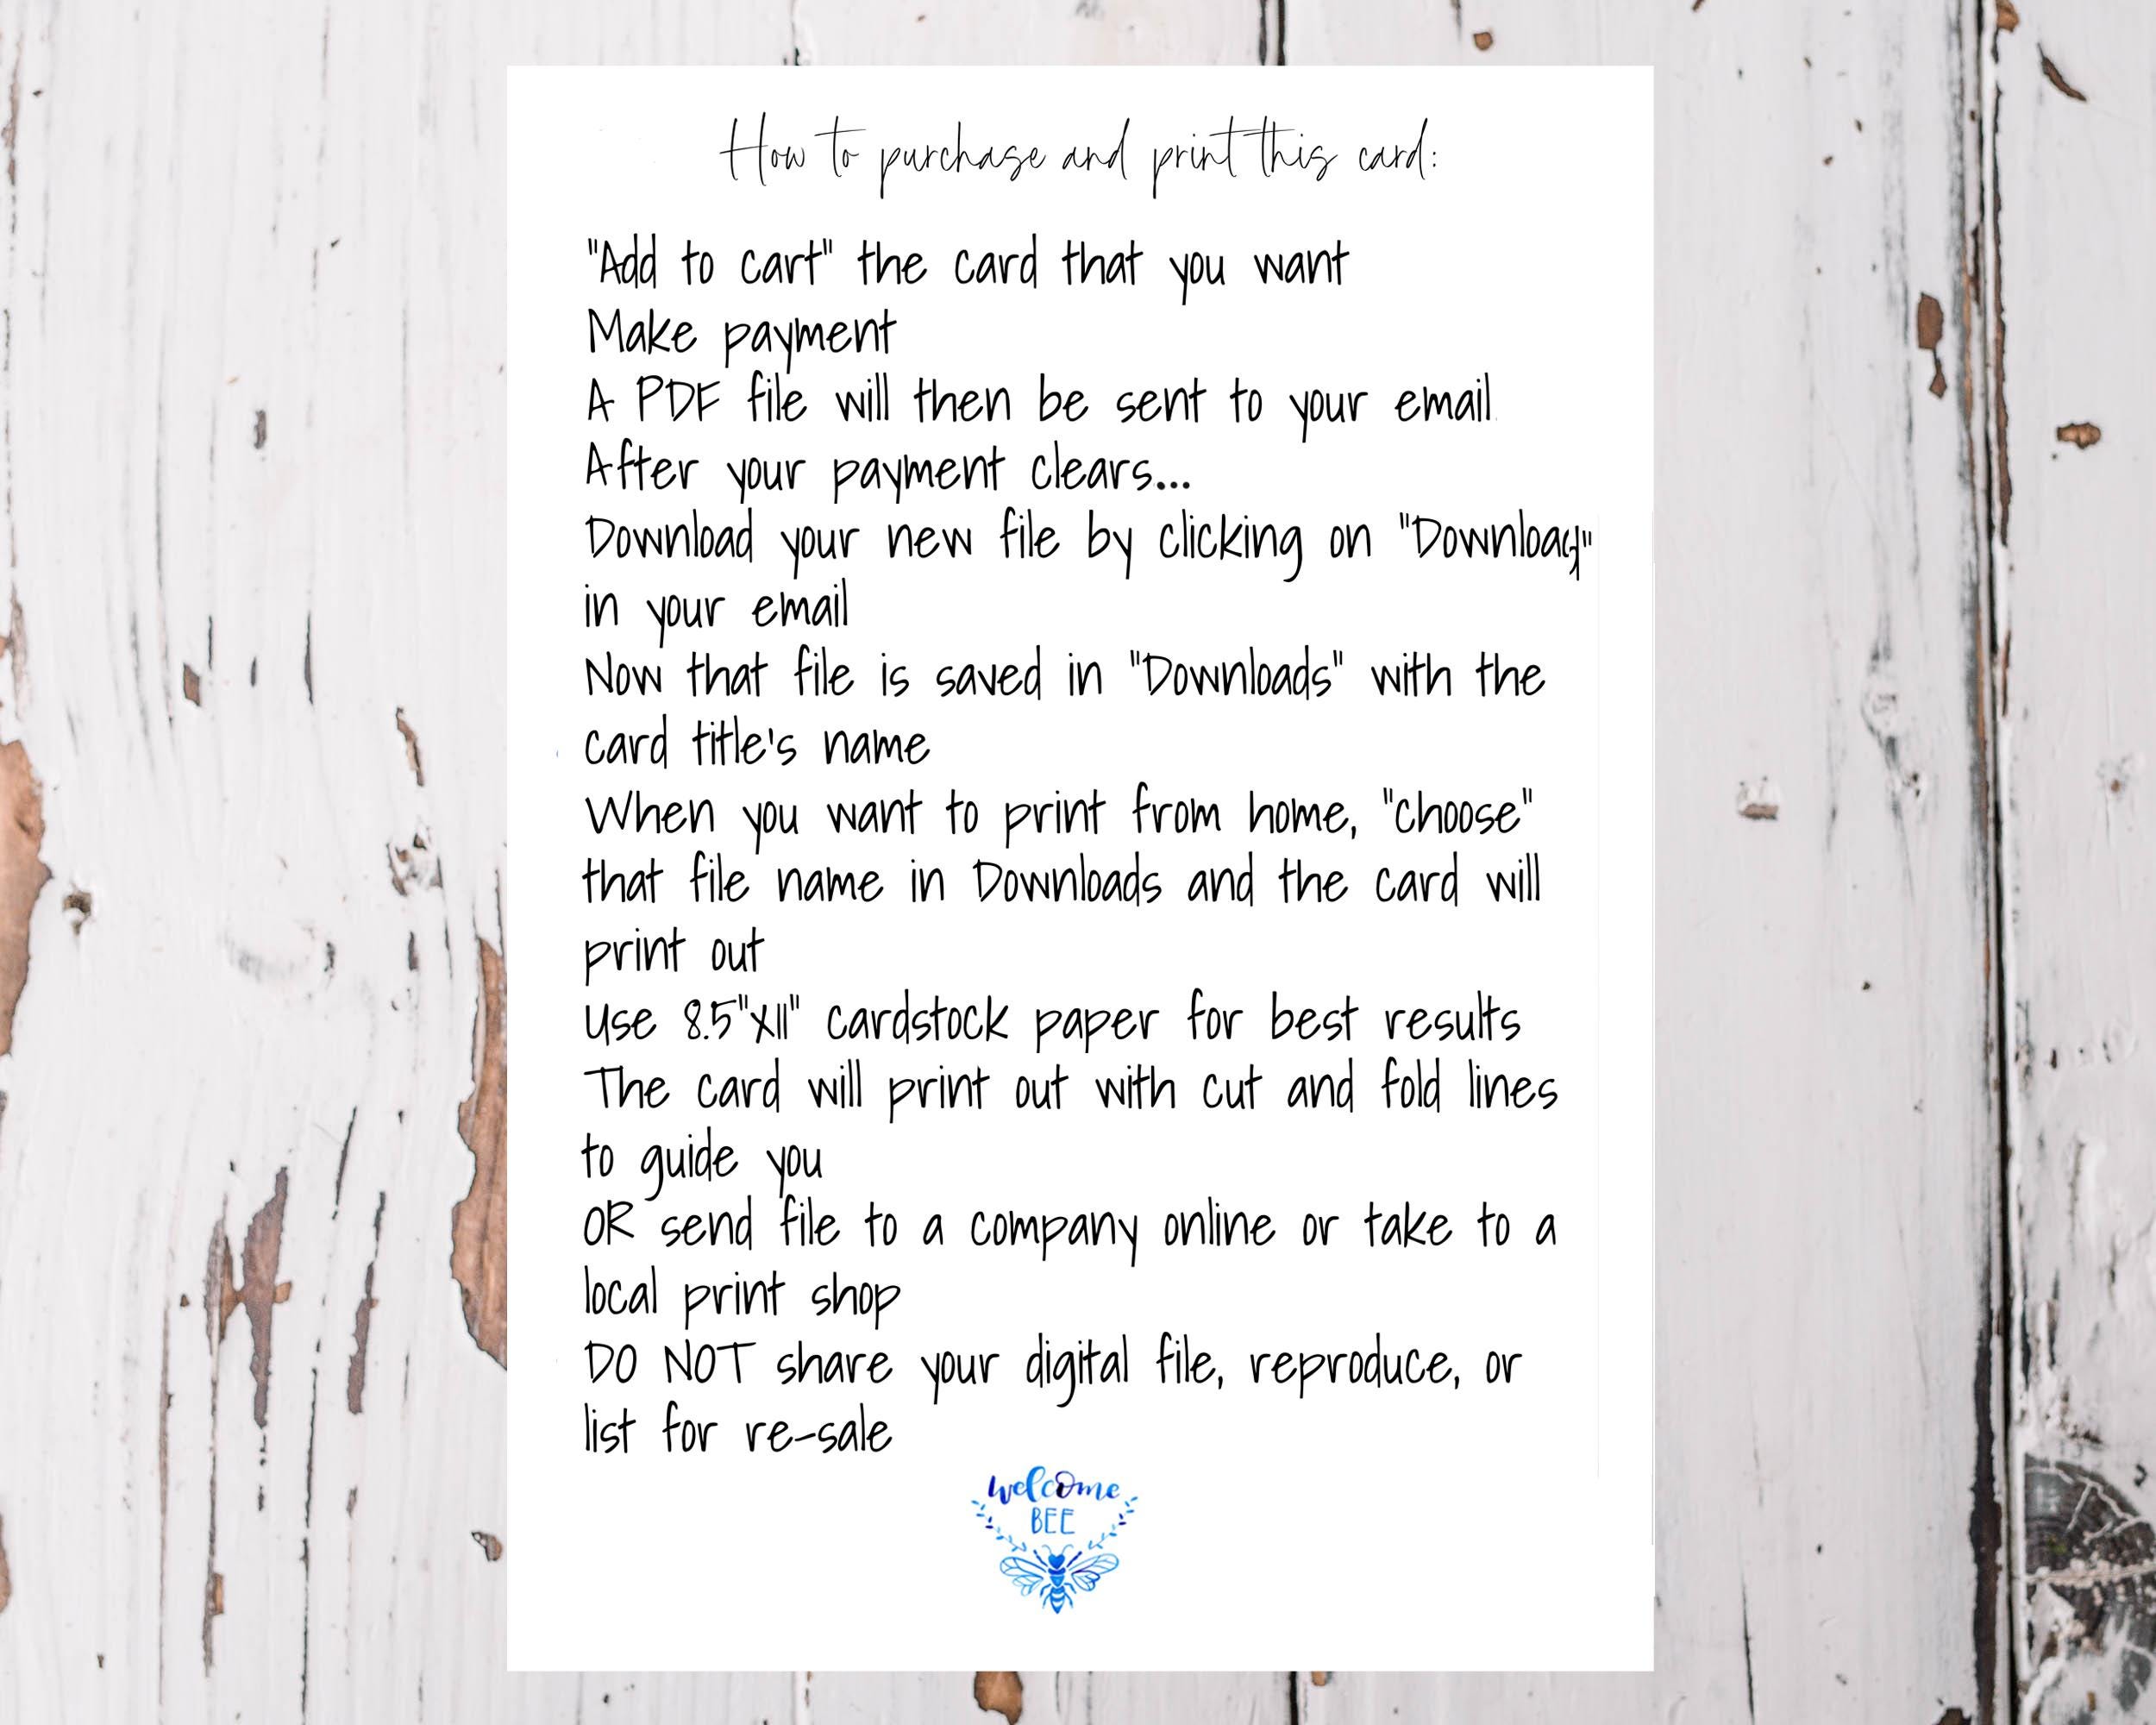 How to purchase and print this card:
"Add to cart" the card that you want
Make payment
A PDF file will then be sent to your email.
After your payment clears...
Download your new file by clicking on "Download"
in your email
Now that file is saved in "Downloads" with the
card title's name
When you want to print from home, "Choose"
that file name in Downloads and the card will
print out
Use 8.5"x11" cardstock paper for best results
The card will print out with cut and fold lines
to guide you
OR send file to a company online or take to a
local print shop
DO NOT share your digital file, reproduce, or
list for re-sale
welcome
BEE